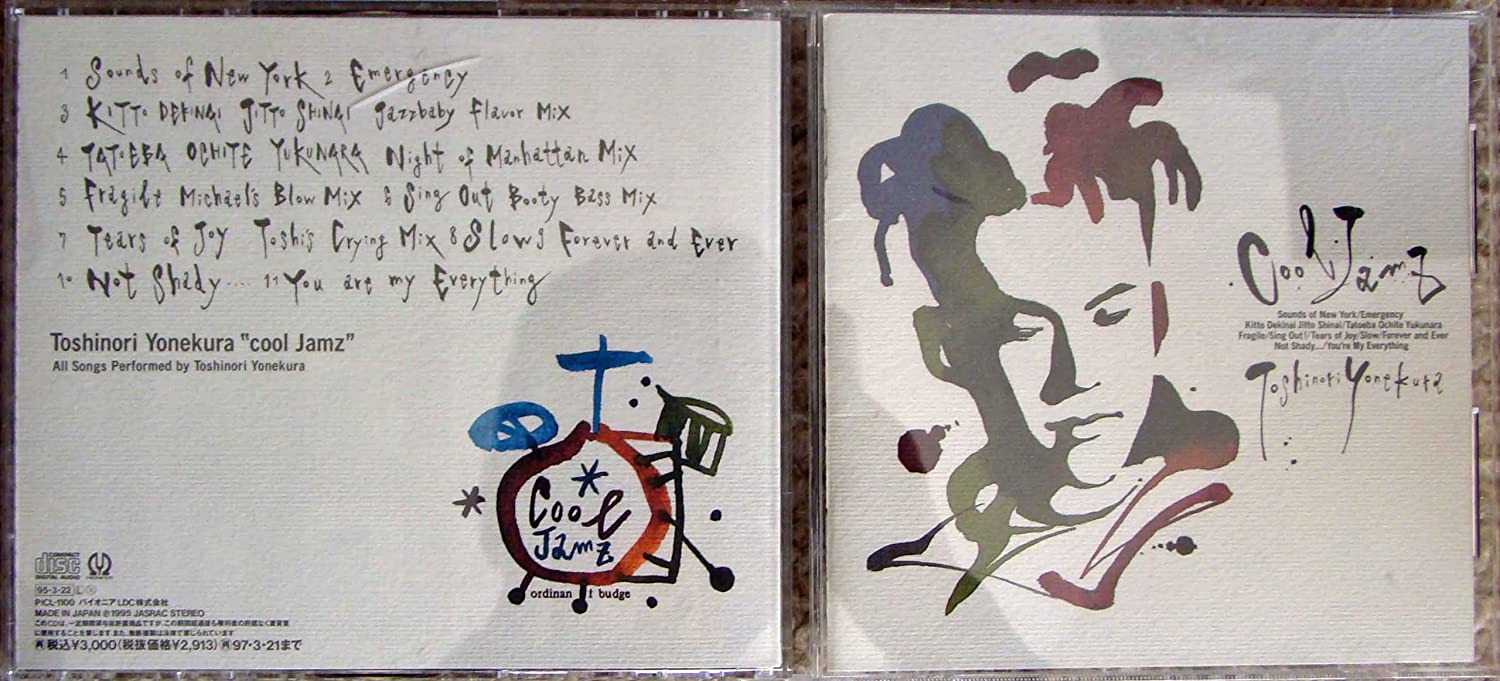 1 Sounds of New York 2 Emergency
3 KITTO DEKINAI JITTO SHINAI Jazzbaby Flavor Mix
4 TATOEBA OCHITE YUKUNARA Night of Manhattan Mix
5 Fragile Michael's Blow Mix 6 Sing Out Booty Bass Mix
7 Tears of Joy Toshi's Crying Mix 8 Slow 9 Forever and Ever
10 Not Shady.... 11 You are my Everything
Toshinori Yonekura "cool Jamz"
All Songs Performed by Toshinori Yonekura
Cool
Jamz
ordinan t budge
COMPACT
disc
DIGITAL AUDIO
95-3-22 L
PICL-1100 パイオニアLDC株式会社
MADE IN JAPAN ℗1995 JASRAC STEREO
このCDは、一定期間貸与非許諾商品ですが、この期間経過後も権利者の許諾なく賃貸業
に使用することを禁じます また、無断複製は法律で禁じられています
再 税込¥3,000(税抜価格¥2,913) 再97・3・21まで
Cool Jamz
Sounds of New York/Emergency
Kitto Dekinai Jitto Shinai/Tatoeba Ochite Yukunara
Fragile/Sing Out!/Tears of Joy/Slow/Forever and Ever
Not Shady.../You're My Everything
Toshinori Yonekura